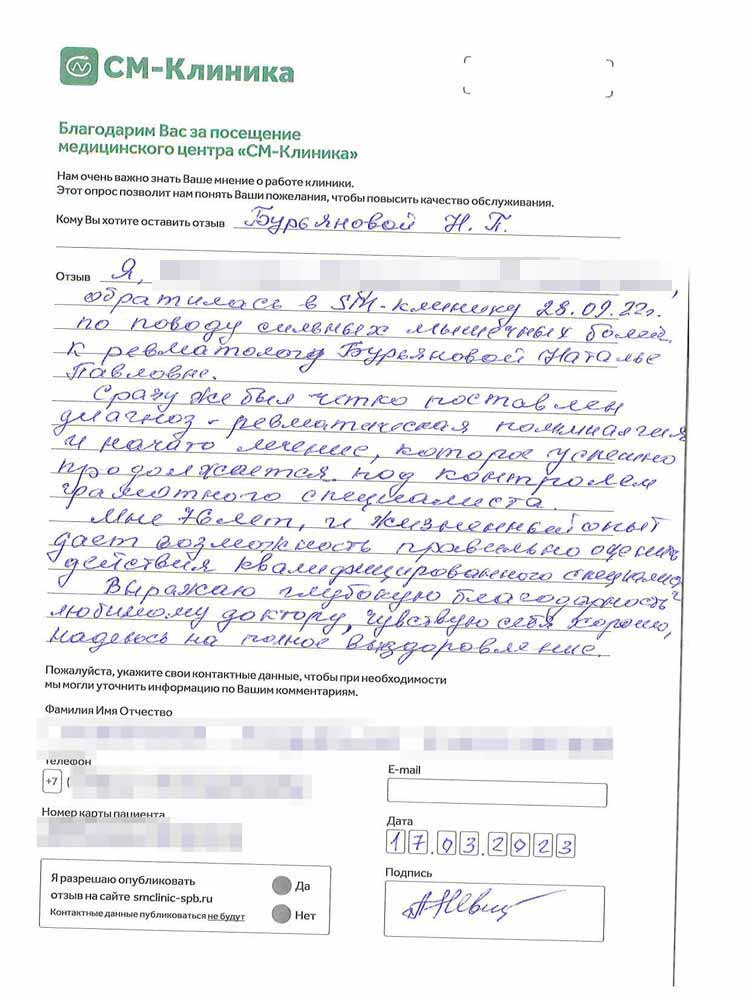 СМ-Клиника
Благодарим Вас за посещение
медицинского центра «СМ-Клиника»
Нам очень важно знать Ваше мнение о работе клиники.
Этот опрос позволит нам понять Ваши пожелания, чтобы повысить качество обслуживания.
Кому Вы хотите оставить отзыв Бурьяновой Н. П.
Отзыв Я,
обратилась в SM-клинику 28.09.22г.
по поводу сильных мышечных болей
к ревматологу Бурьяновой Наталье
Павловне.
Сразу же был четко поставлен
диагноз - ревматическая полимиалгия
и начато лечение, которое успешно
продолжается под контролем
грамотного специалиста.
Мне 76 лет, и жизненный опыт
дает возможность правильно оценить
действия квалифицированного специалиста
Выражаю глубокую благодарность
любимому доктору, чувствую себя хорошо,
надеюсь на полное выздоровление.
Пожалуйста, укажите свои контактные данные, чтобы при необходимости
мы могли уточнить информацию по Вашим комментариям.
Фамилия Имя Отчество
Телефон
+7 (
E-mail
Номер карты пациента
Дата
17.03.2023
Я разрешаю опубликовать
отзыв на сайте smclinic-spb.ru
Контактные данные публиковаться не будут
Да
Нет
Подпись